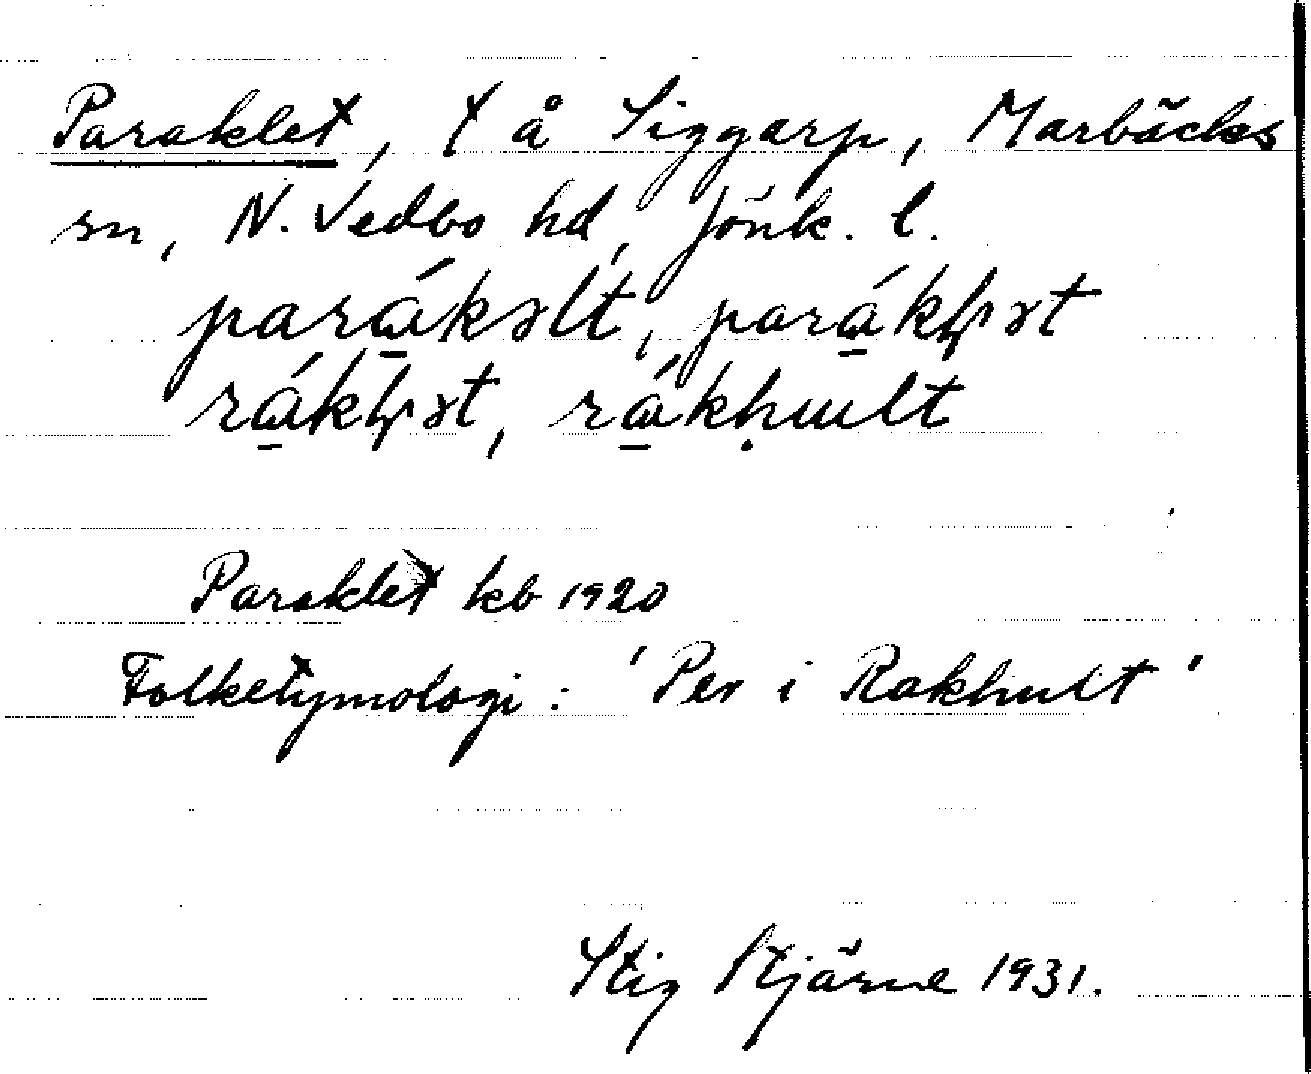 Paraklet, t å Siggarp, Marbäcks
sn, N. Vedbo hd, Jönk. l.
parákəlt, paráklət
ráklət, rákhult
Paraklet kb 1920
Folketymologi: 'Per i Rakhult'
Stig Stjärne 1931.